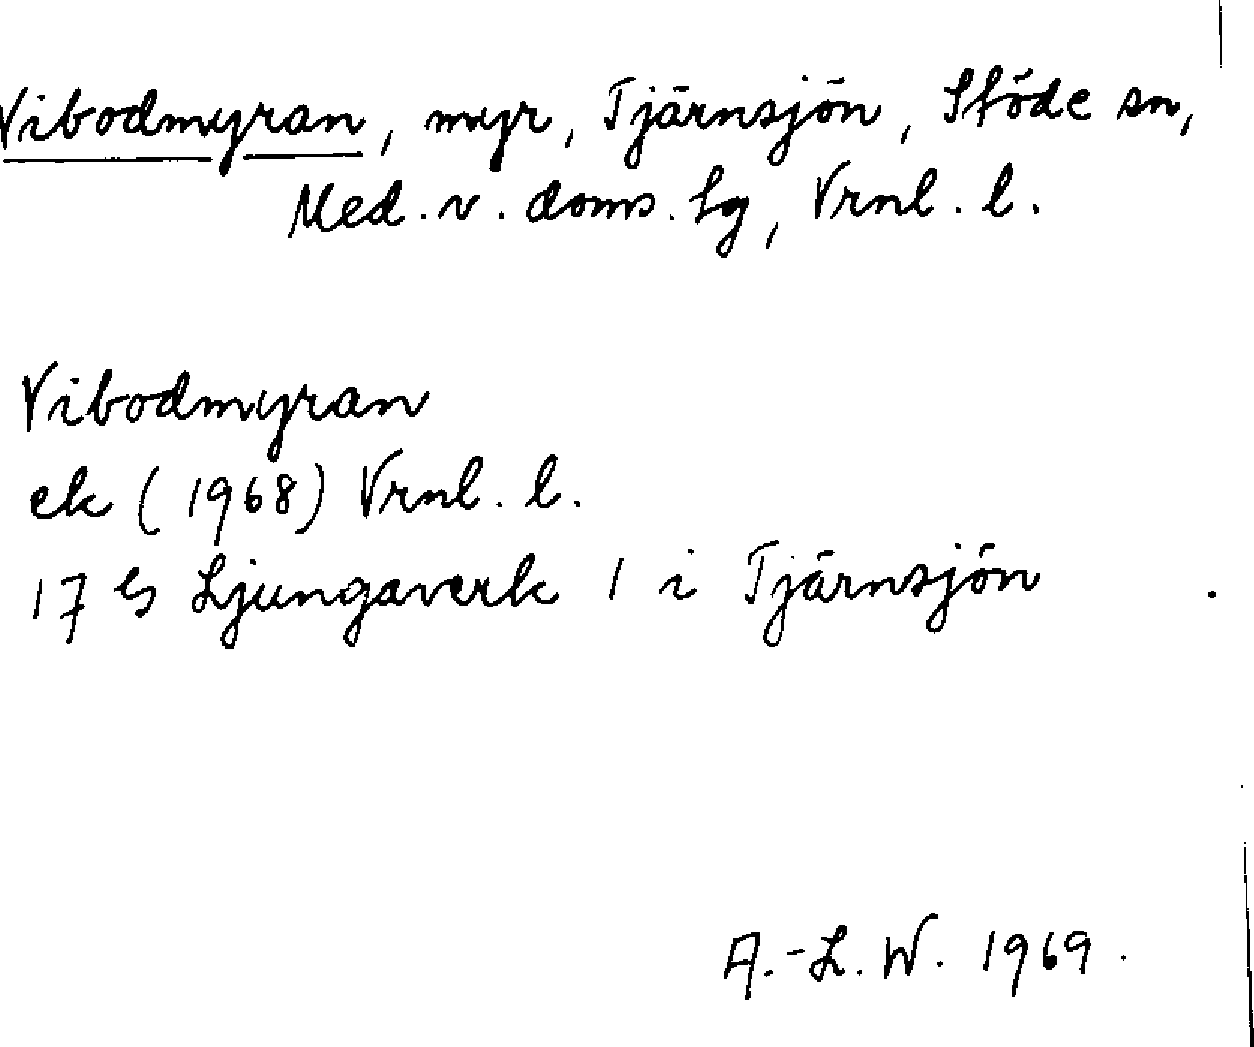 Vibodmyran, myr, Tjärnsjön, Stöde sn,
Med. v. doms. lg, Vrnl. l.
Vibodmyran
ek (1968) Vrnl. l.
17 G Ljungaverk 1 i Tjärnsjön .
A.-L. W. 1969.